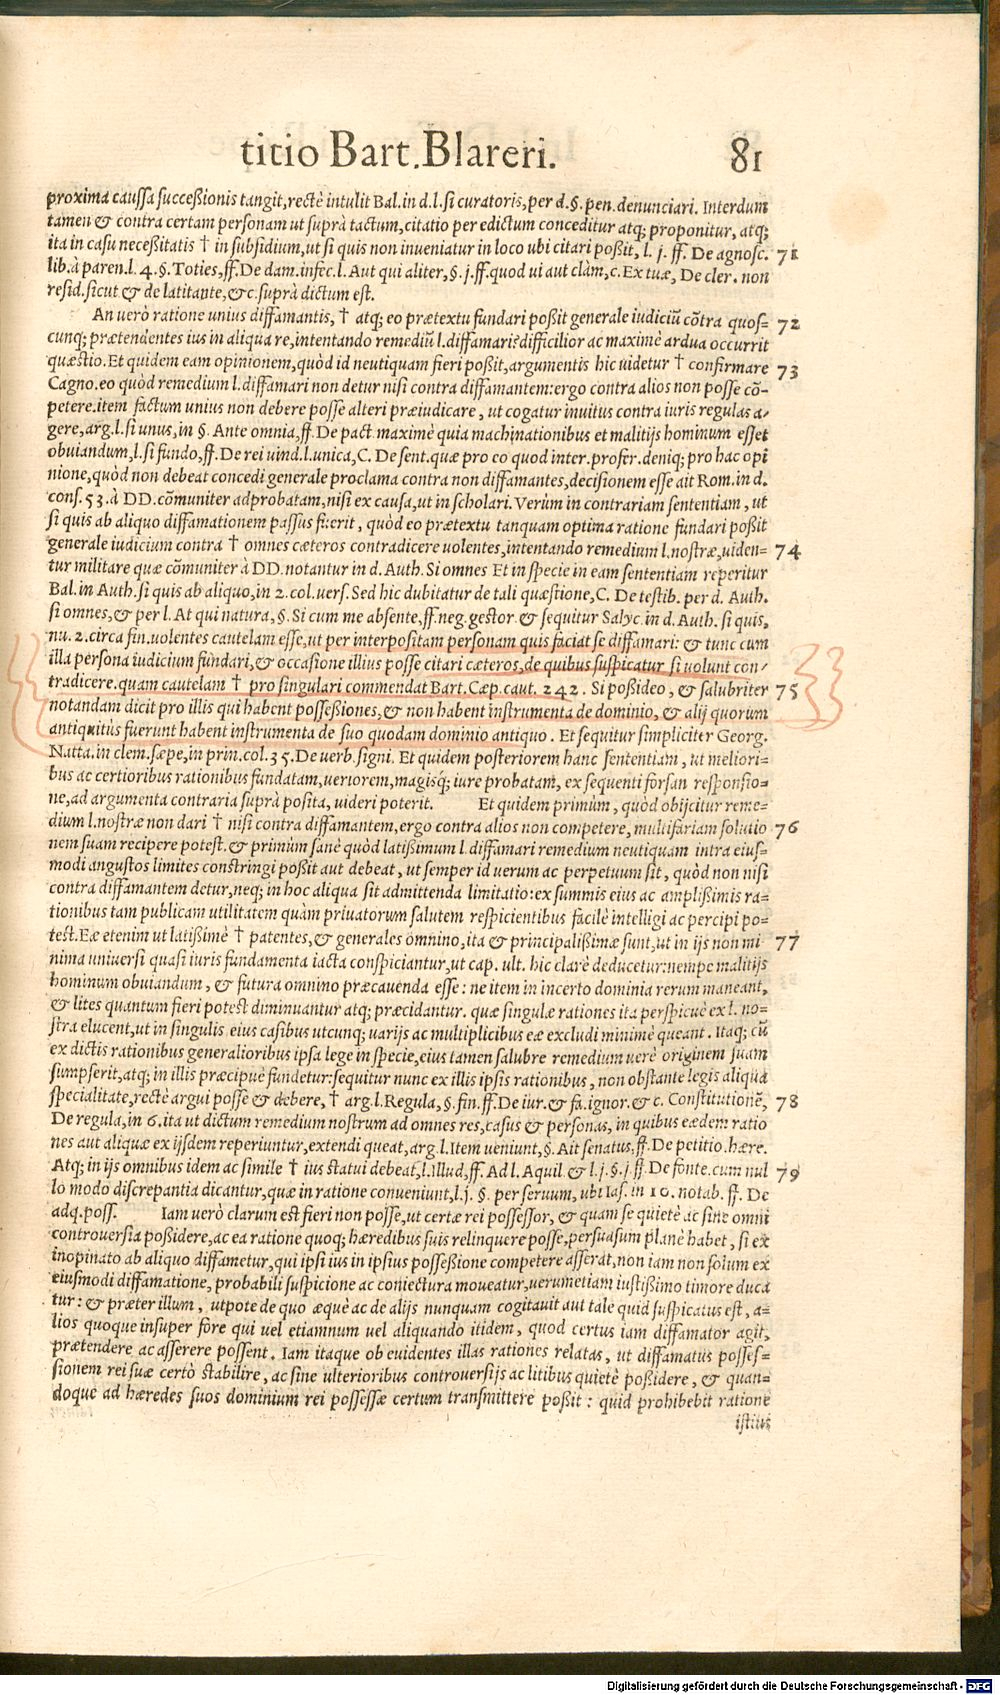 titio Bart. Blareri. 81
proxima caussa succeßionis tangit, rectè intulit Bal. in d. l. si curatoris, per d. §. pen. denunciari. Interdum
tamen & contra certam personam ut suprà tactum, citatio per edictum conceditur atq; proponitur, atq;
ita in casu neceßitatis † in subsidium, ut si quis non inueniatur in loco ubi citari poßit, l. j. ff. De agnosc. 71
lib. à paren. l. 4. §. Toties, ff. De dam. infec. l. Aut qui aliter, §. j. ff. quod ui aut clàm, c. Ex tuæ, De cler. non
resid. sicut & de latitante, &c. suprà dictum est.
An uerò ratione unius diffamantis, † atq; eo prætextu fundari poßit generale iudiciũ cõtra quos= 72
cunq; prætendentes ius in aliqua re, intentando remediũ l. diffamari? difficilior ac maximè ardua occurrit
quæstio. Et quidem eam opinionem, quòd id neutiquam fieri poßit, argumentis hic uidetur † confirmare 73
Cagno. eo quòd remedium l. diffamari non detur nisi contra diffamantem: ergo contra alios non posse cõ=
petere. item factum unius non debere posse alteri præiudicare, ut cogatur inuitus contra iuris regulas a=
gere, arg. l. si unus, in §. Ante omnia, ff. De pact. maximè quia machinationibus et malitijs hominum esset
obuiandum, l. si fundo, ff. De rei uind. l. unica, C. De sent. quæ pro eo quod inter. profer. deniq; pro hac opi
nione, quòd non debeat concedi generale proclama contra non diffamantes, decisionem esse ait Rom. in d.
cons. 53. à DD. cõmuniter adprobatam, nisi ex causa, ut in scholari. Verùm in contrariam sententiam, ut
si quis ab aliquo diffamationem passus fuerit, quòd eo prætextu tanquam optima ratione fundari poßit
generale iudicium contra † omnes cæteros contradicere uolentes, intentando remedium l. nostræ, uiden= 74
tur militare quæ cõmuniter à DD. notantur in d. Auth. Si omnes Et in specie in eam sententiam reperitur
Bal. in Auth. si quis ab aliquo, in 2. col. uers. Sed hic dubitatur de tali quæstione, C. De testib. per d. Auth.
si omnes, & per l. At qui natura, §. Si cum me absente, ff. neg. gestor. & sequitur Salyc. in d. Auth. si quis,
nu. 2. circa fin. uolentes cautelam esse, ut per interpositam personam quis faciat se diffamari: & tunc cum
illa persona iudicium fundari, & occasione illius posse citari cæteros, de quibus suspicatur si uolunt con=
tradicere. quam cautelam † pro singulari commendat Bart. Cæp. caut. 242. Si poßideo, & salubriter 75
notandam dicit pro illis qui habent posseßiones, & non habent instrumenta de dominio, & alij quorum
antiquitùs fuerunt habent instrumenta de suo quodam dominio antiquo. Et sequitur simpliciter Georg.
Natta. in clem. sæpe, in prin. col. 35. De uerb. signi. Et quidem posteriorem hanc sententiam, ut meliori=
bus ac certioribus rationibus fundatam, ueriorem, magisq́; iure probatam, ex sequenti forsan responsio=
ne, ad argumenta contraria suprà posita, uideri poterit. Et quidem primùm, quòd obijcitur reme=
dium l. nostræ non dari † nisi contra diffamantem, ergo contra alios non competere, multifariam solutio 76
nem suam recipere potest. & primùm sanè quòd latißimum l. diffamari remedium neutiquam intra eius=
modi angustos limites constringi poßit aut debeat, ut semper id uerum ac perpetuum sit, quòd non nisi
contra diffamantem detur, neq; in hoc aliqua sit admittenda limitatio: ex summis eius ac amplißimis ra=
tionibus tam publicam utilitatem quàm priuatorum salutem respicientibus facilè intelligi ac percipi po=
test. Eæ etenim ut latißimè † patentes, & generales omnino, ita & principalißimæ sunt, ut in ijs non mi 77
nima uniuersi quasi iuris fundamenta iacta conspiciantur, ut cap. ult. hic clarè deducetur: nempe malitijs
hominum obuiandum, & futura omnino præcauenda esse: ne item in incerto dominia rerum maneant,
& lites quantum fieri potest diminuantur atq; præcidantur. quæ singulæ rationes ita perspicuè ex l. no=
stra elucent, ut in singulis eius casibus utcunq; uarijs ac multiplicibus eæ excludi minimè queant. Itaq; cũ
ex dictis rationibus generalioribus ipsa lege in specie, eius tamen salubre remedium uerè originem suam
sumpserit, atq; in illis præcipuè fundetur: sequitur nunc ex illis ipsis rationibus, non obstante legis aliqua
specialitate, rectè argui posse & debere, † arg. l. Regula, §. fin. ff. De iur. & fa. ignor. & c. Constitutionẽ, 78
De regula, in 6. ita ut dictum remedium nostrum ad omnes res, casus & personas, in quibus eædem ratio
nes aut aliquæ ex ijsdem reperiuntur, extendi queat, arg. l. Item ueniunt, §. Ait senatus, ff. De petitio. hære.
Atq; in ijs omnibus idem ac simile † ius statui debeat, l. Illud, ff. Ad l. Aquil. & l. j. §. j. ff. De fonte. cum nul 79
lo modo discrepantia dicantur, quæ in ratione conueniunt, l. j. §. per seruum, ubi Ias. in 10. notab. ff. De
adq. poss. Iam uerò clarum est fieri non posse, ut certæ rei possessor, & quam se quietè ac sine omni
controuersia poßidere, ac ea ratione quoq; hæredibus suis relinquere posse, persuasum planè habet, si ex
inopinato ab aliquo diffametur, qui ipsi ius in ipsius posseßione competere asserat, non iam non solum ex
eiusmodi diffamatione, probabili suspicione ac coniectura moueatur, uerumetiam iustißimo timore duca
tur: & præter illum, utpote de quo æquè ac de alijs nunquam cogitauit aut tale quid suspicatus est, a=
lios quoque insuper fore qui uel etiamnum uel aliquando itidem, quod certus iam diffamator agit,
prætendere ac asserere possent. Iam itaque ob euidentes illas rationes relatas, ut diffamatus posses=
sionem rei suæ certò stabilire, ac sine ulterioribus controuersijs ac litibus quietè poßidere, & quan=
doque ad hæredes suos dominium rei possessæ certum transmittere poßit: quid prohibebit ratione
istius
Digitalisierung gefördert durch die Deutsche Forschungsgemeinschaft - DFG